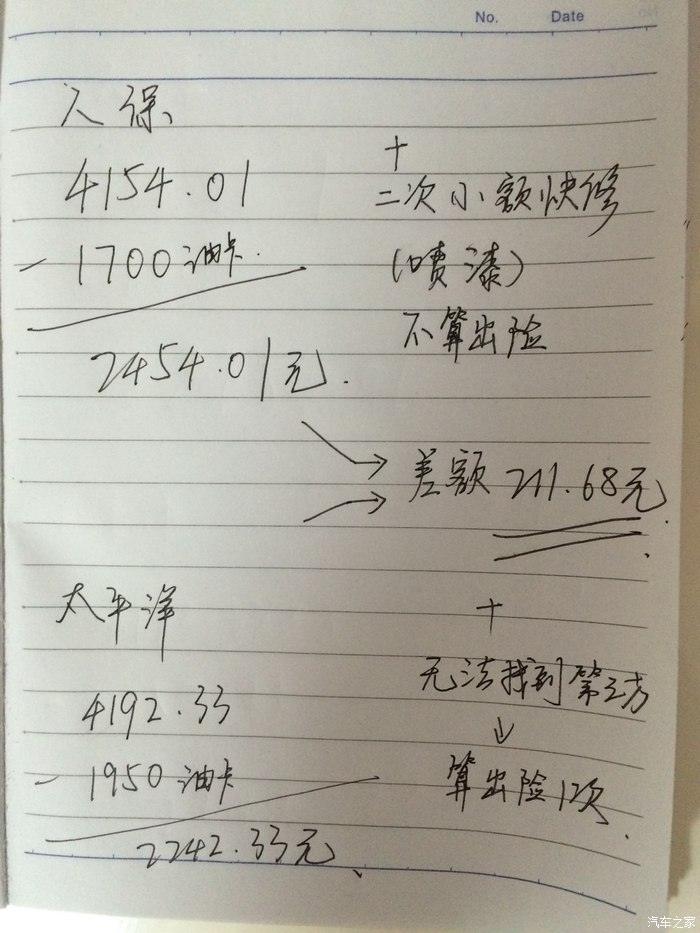 No.
Date
人保
4154.01
- 1700油卡.
2454.01元.
+
二次小额快修
(喷漆)
不算出险
差额 211.68元.
太平洋
4192.33
- 1950油卡
2242.33元.
+
无法找到第三方
↓
算出险1次.
汽车之家